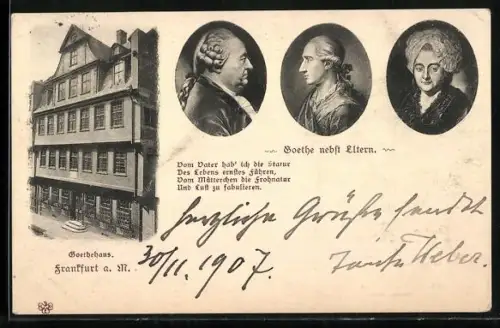 Goethe nebst Eltern.
Vom Vater hab' ich die Statur
Des Lebens ernstes Führen,
Vom Mütterchen die Frohnatur
Und Lust zu fabulieren.
Goethehaus.
Frankfurt a. M.
Herzliche Grüße sendet
30/11. 1907.
Weber.